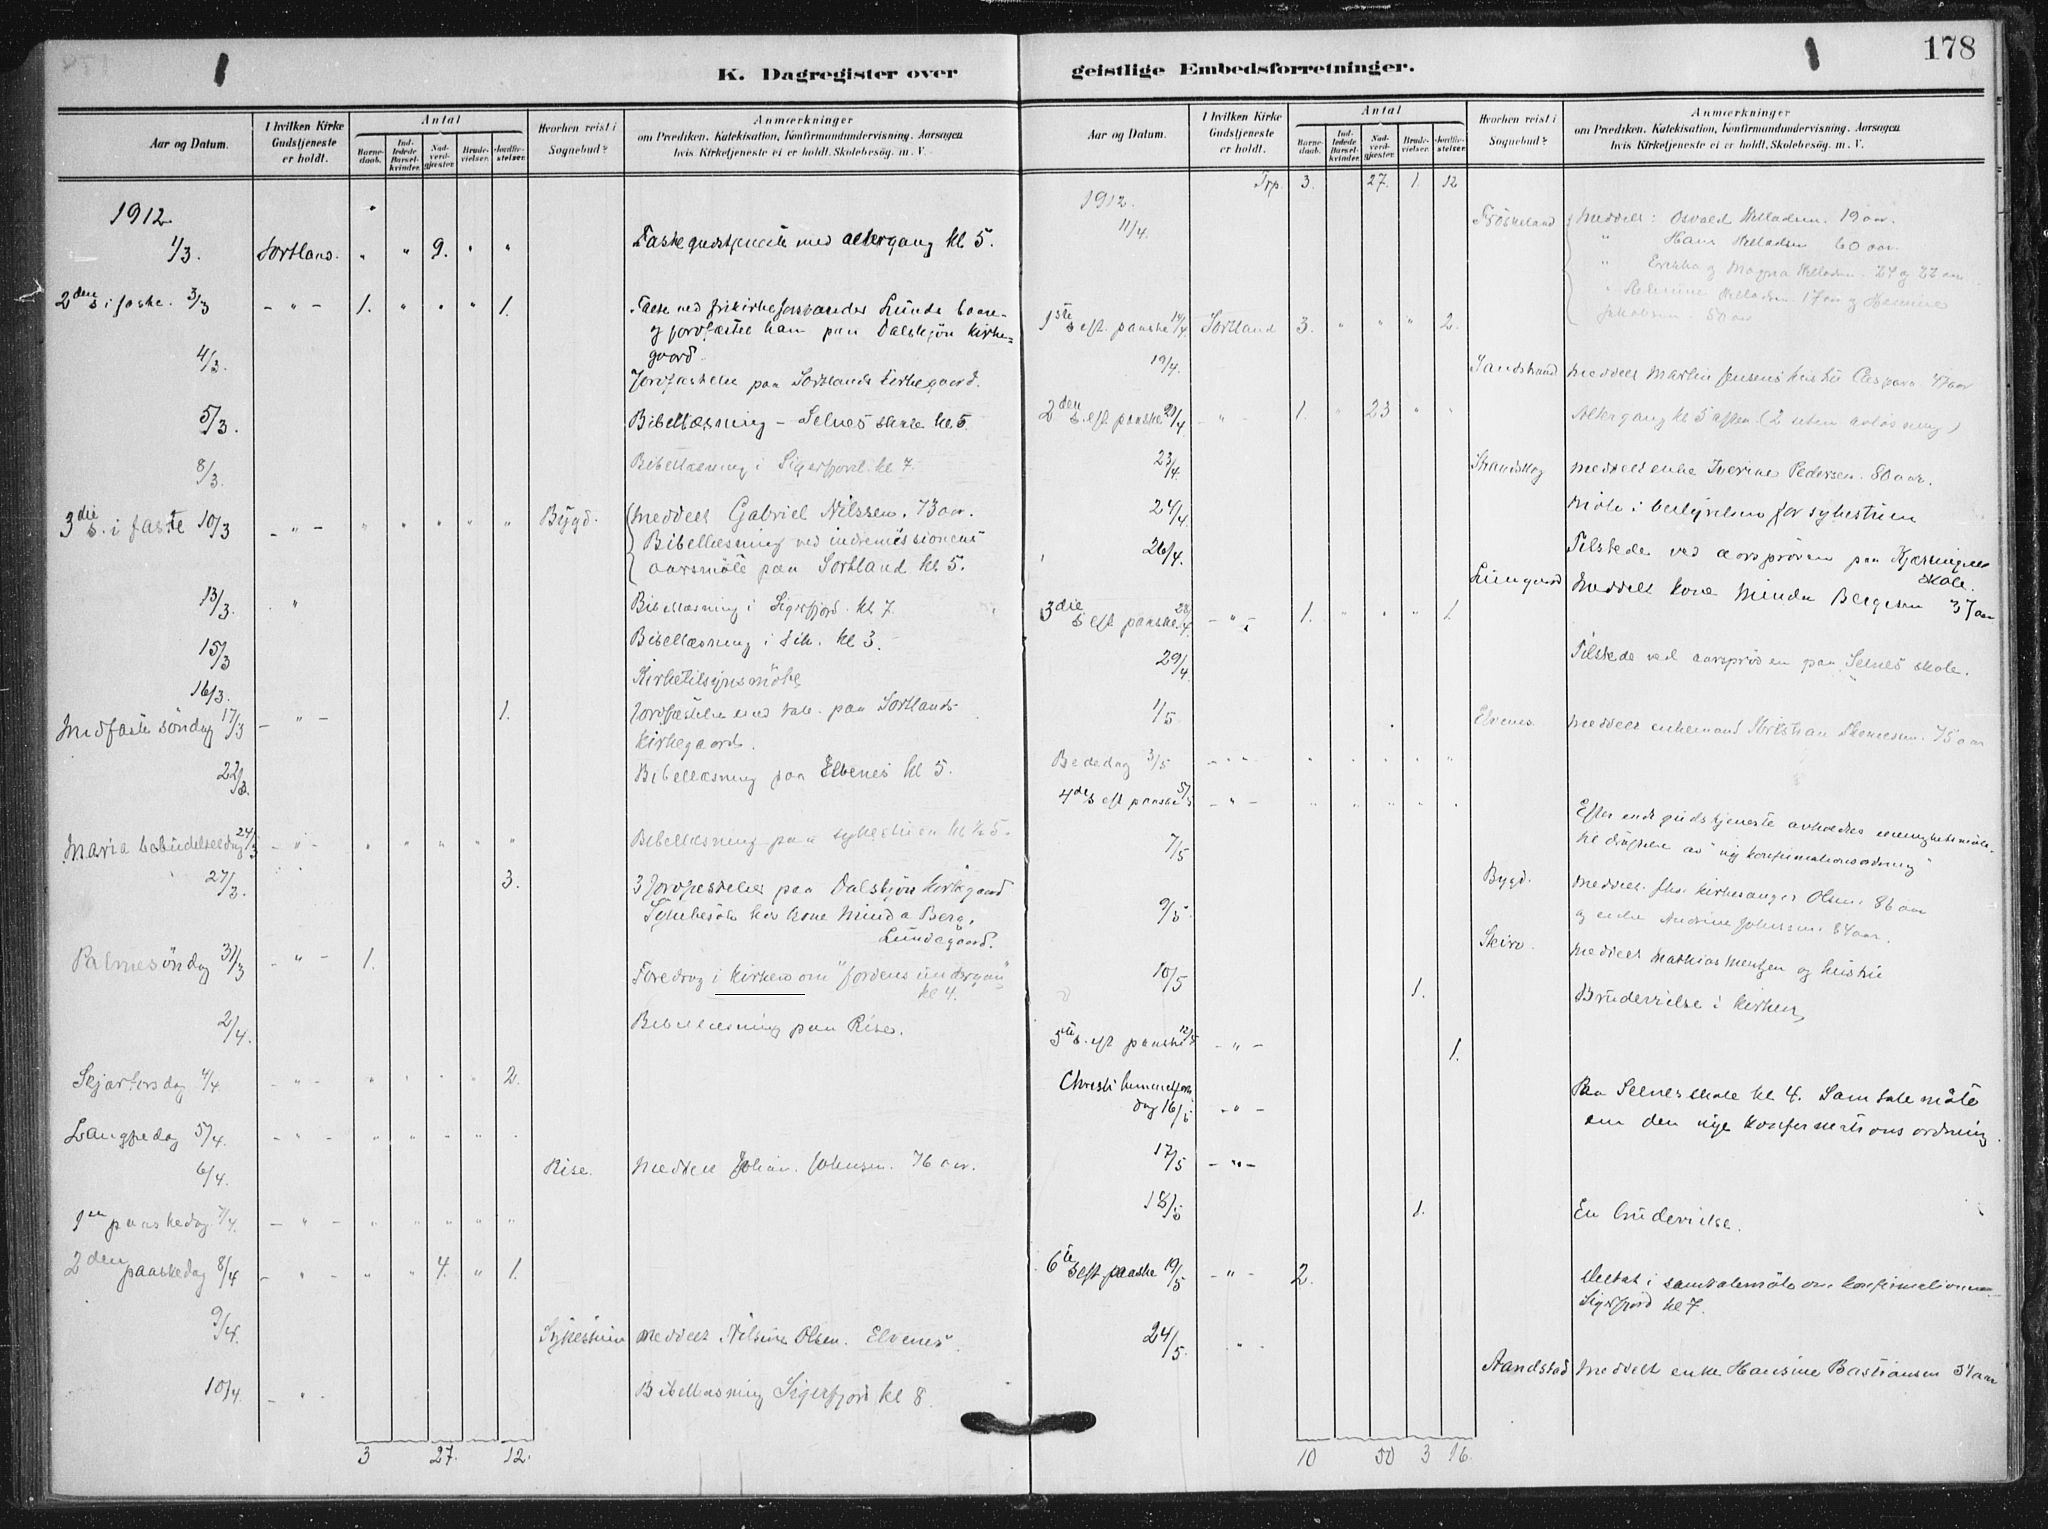 178
K. Dagregister over
Aar og Datum.
I hvilken Kirke Gudstjeneste er holdt.
Antal
Barnedaab. Indledede Barselkvinder. Nadverdgjæster. Brudevielser. Jordfæstelser.
Hvorhen reist i Sognebud?
Anmærkninger
om Prædiken, Katekisation, Konfirmandundervisning. Aarsagen
hvis Kirketjeneste ei er holdt. Skolebesög. m. V.
1912.
1/3. Sortland. " " 9. " " Fastegudstjeneste med altergang kl 5.
2den s. i faste. 3/3 - " - 1. " " " 1. Faste ved
og jordfæstet ham paa Dalskjøn kirke-
gaard.
4/3. Jordfæstelse paa Sortlands kirkegaard.
5/3. Bibellæsning - Selnes skole kl 5.
8/3. Bibellæsning i Sigerfjord kl 7.
3die s. i faste 10/3 - " - " " " " " Bygd. Meddelt Gabriel Nilssen. 73 aar.
Bibellæsning ved indremissionens
aarsmöte paa Sortland kl 5.
13/3. " Bibellæsning i Sigerfjord kl 7.
15/3 Bibellæsning i kl 3.
16/3. Kirketilsynsmöte
Midfaste söndag 17/3 - " - 1. Jordfæstelse med tale paa Sortlands
kirkegaard.
22/3. Bibellæsning paa Elvenes kl 5.
Maria bebudelsesdag 24/3 - " - " " " " " Bibellæsning paa sykestuen kl ½5.
27/3. 3. 3 Jordfæstelser paa Dalskjøn kirkegaard
Sykebesök hos kone Minda Berg,
Lundegaard.
Palmesöndag 31/3 - " - 1. Foredrag i kirken om "Jordens undergang"
kl 4.
2/4. Bibellæsning paa Rise.
Skjærtorsdag 4/4. - " - " " " " 2.
Langfredag 5/4. - " - " " " " "
6/4. Rise. Meddelt Johan Johnsen. 76 aar.
1ste paaskedag 7/4. - " - " " " " "
2den paaskedag 8/4 - " - " " 4. " 1.
9/4. Sykestuen Meddelt Nilsine Olsen. Elvenes.
10/4. - " Bibellæsning Sigerfjord kl 8.
3 27. 12.
geistlige Embedsforretninger.
Aar og Datum.
I hvilken Kirke Gudstjeneste er holdt.
Antal
Barnedaab. Indledede Barselkvinder. Nadverdgjæster. Brudevielser. Jordfæstelser.
Hvorhen reist i Sognebud?
Anmærkninger
om Prædiken, Katekisation, Konfirmandundervisning. Aarsagen
hvis Kirketjeneste ei er holdt. Skolebesög. m. V.
Trp. 3. 27. 1. 12
1912.
11/4. Fröskeland Meddelt: Osvald Helladsen. 19 aar.
" Hans Helladsen 60 aar.
" Erikka og Magna Helladsen. 24 og 22 aar
" Helladsen. 17 aar og
Jakobsen. 50 aar
1ste s. eft. paaske 14/4 Sortland 3. " " " 2.
19/4. Sandstrand Meddelt Martin Jensens hustru Caspara 47 aar
2den s. eft paaske 21/4 " - 1. " 23 " " Altergang kl 5 aften (2 uten avlösning)
23/4. Strandskog Meddelt enke Iverine Pedersen. 80 aar.
24/4. Möte i bestyrelsen for sykestuen
26/4. Tilstede ved aarspröven paa Kjærringnes
skole.
Lungaard Meddelt kone Minda Bergesen 37 aar
3die s. eft paaske 28/4 - " - 1. " " " 1.
29/4. Tilstede ved aarspröven paa Selnes skole.
1/5 Elvenes. Meddelt enkemand Kristian Thomesen. 75 aar
Bededag 3/5 - " - " " " " "
4de s eft paaske 5/5 - " - " " " " " Efter endt gudstjeneste avholdtes menighetsmöte
til dröftelse av "ny konfirmationsordning"
7/5 Bygd. Meddelt fhv. kirkesanger Olsen 86 aar
og enke Andrine Johnssen. 84 aar.
9/5 Skiro. Meddelt Mathias Mentzen og hustru
10/5 1. Brudevielse i kirken,
5te s. eft paaske 12/5 - " - 1.
Christi himmelfarts-
dag 16/5 - " - Paa Selnes skole kl 4. Samtalemöte
om den nye konfirmationsordning.
17/5 - " -
18/5 1. En brudevielse.
6te s eft. paaske 19/5 - " - 2. Deltat i samtalemöte om konfirmationen
Sigerfjord kl 7.
24/5. " Aandstad Meddelt enke Hansine Bastiansen 54 aar
10 50 3 16.